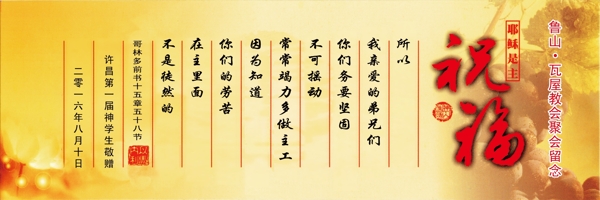 鲁山·瓦屋教会聚会留念
耶稣是主
祝福
所以
我亲爱的弟兄们
你们务要坚固
不可摇动
常常竭力多做主工
因为知道
你们的劳苦
在主里面
不是徒然的
哥林多前书十五章五十八节
许昌第一届神学生敬赠
二零一六年八月十日